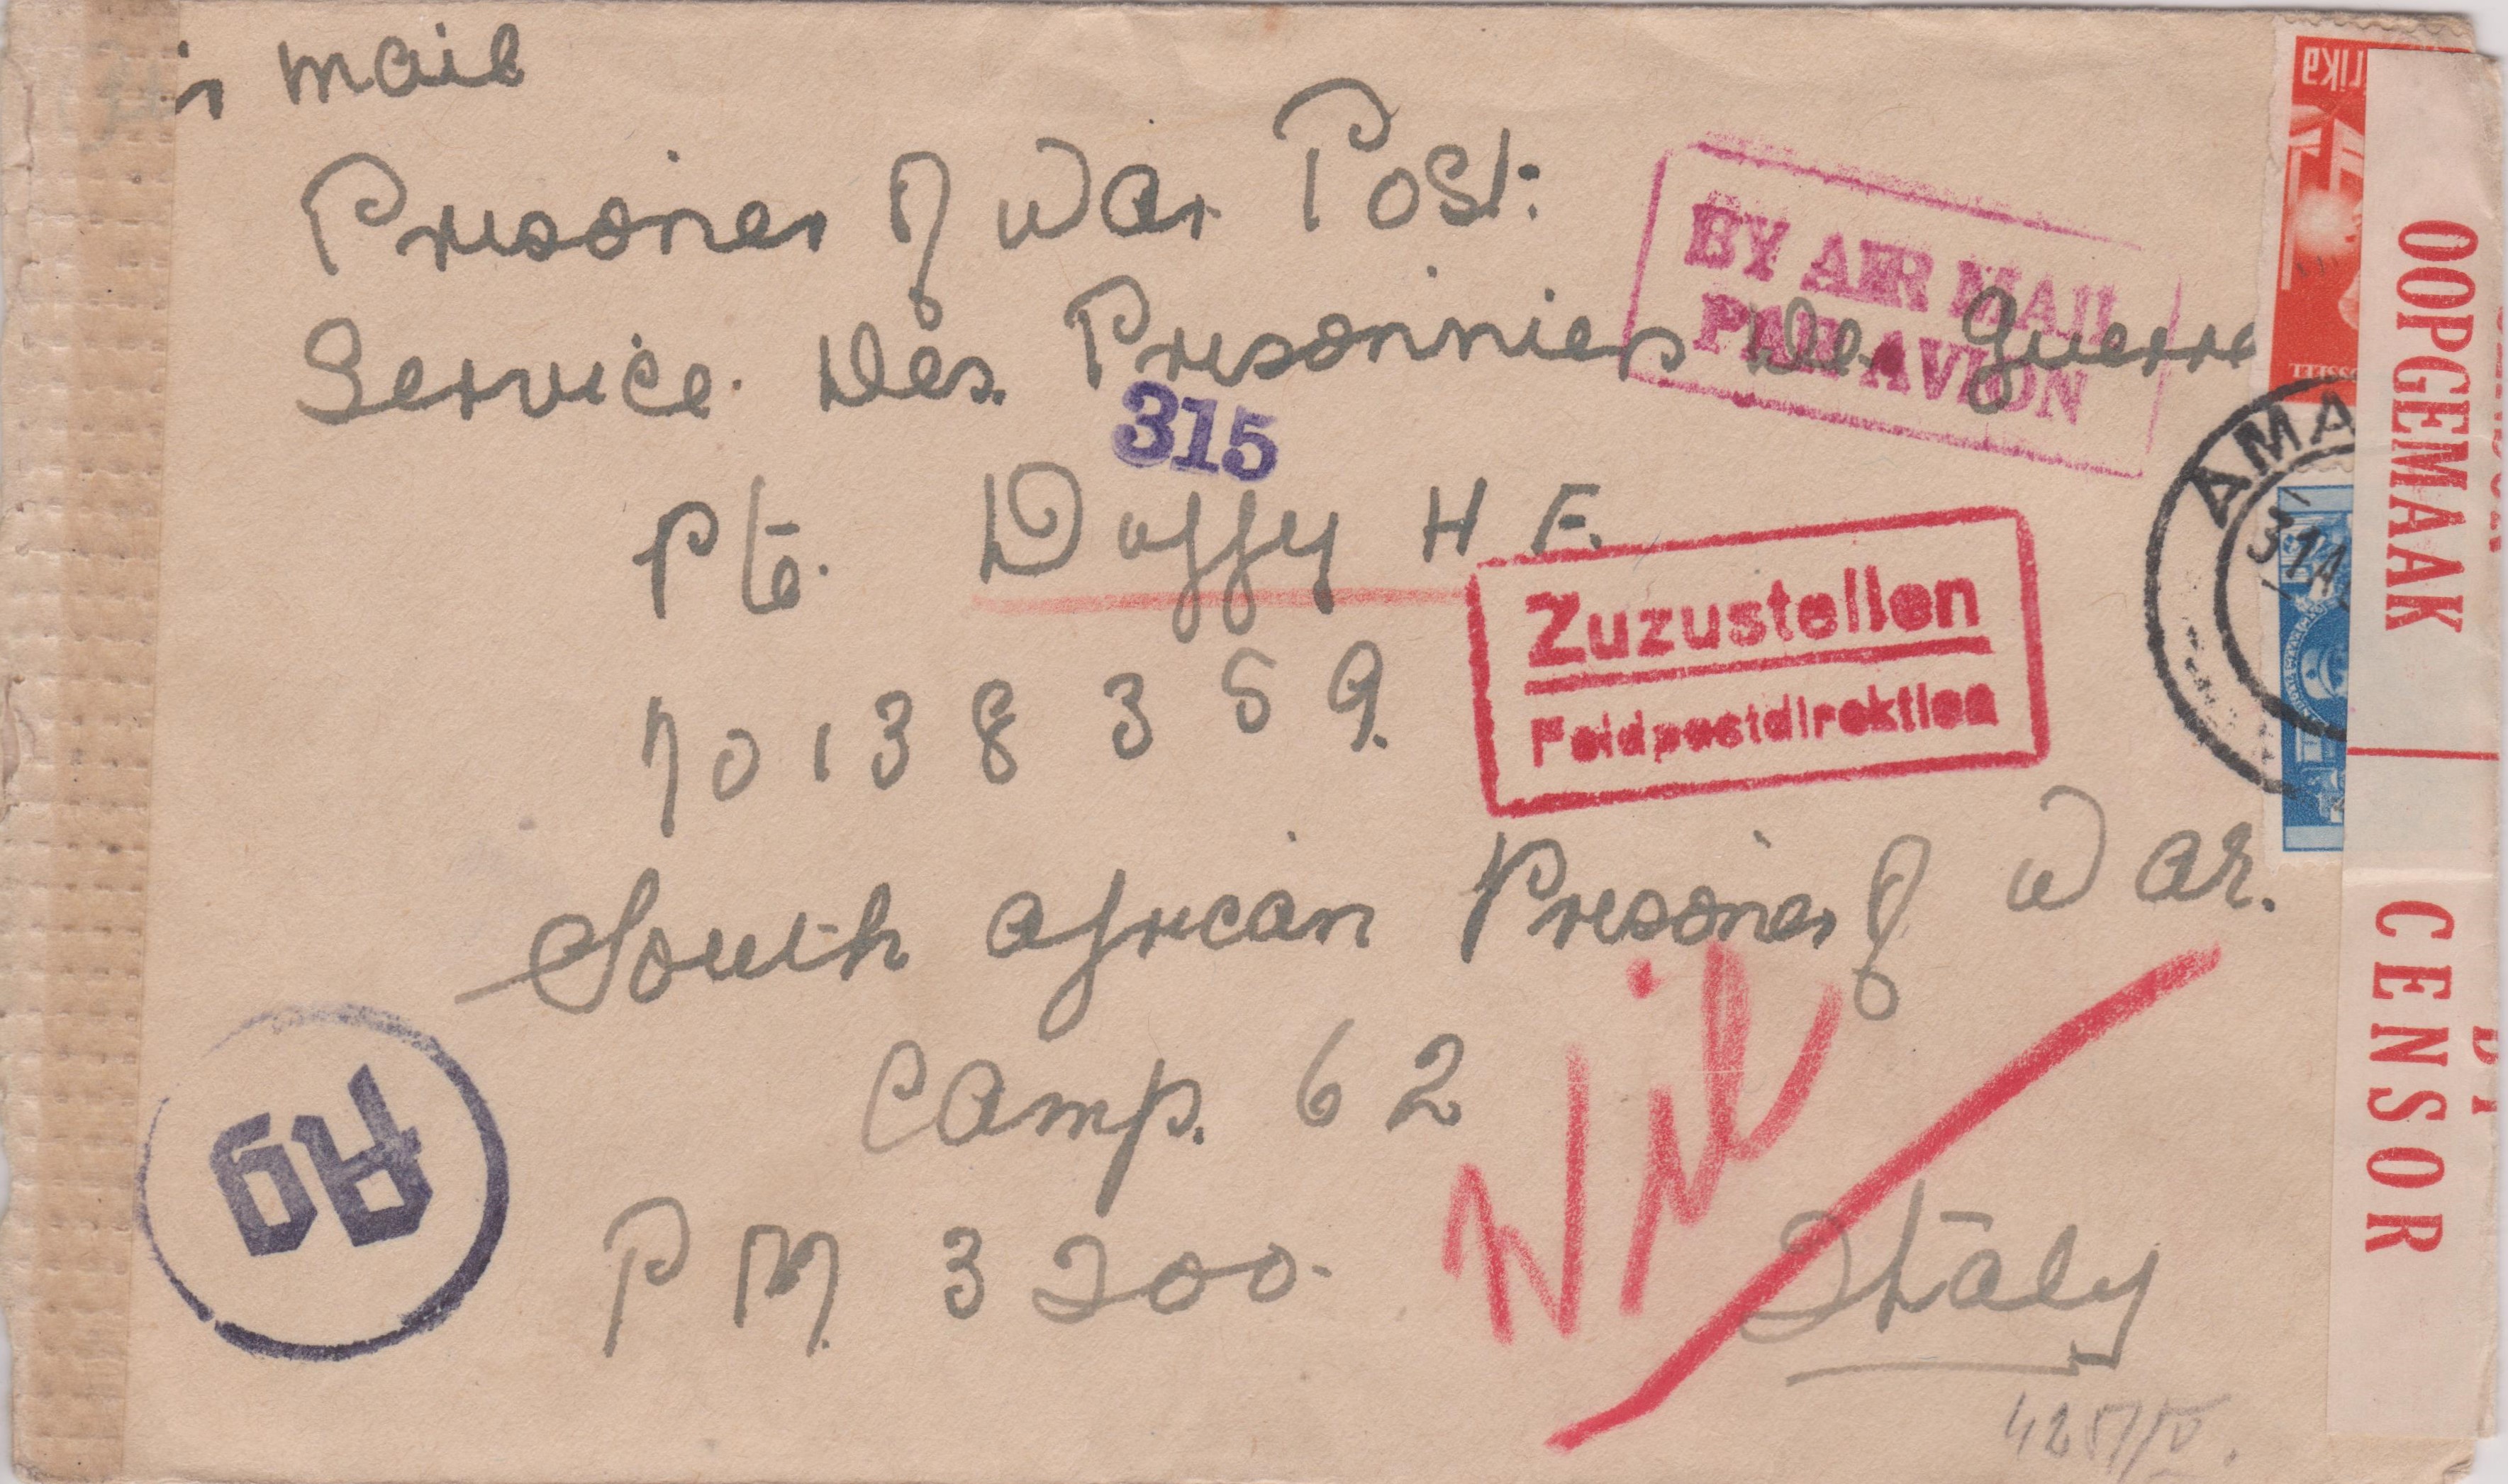 Air mail
Prisoner of War Post.
BY AIR MAIL
PAR AVION
Service Des. Prisonniers De Guerre
315
Pte. Duffy H F.
Zuzustellen
Feldpostdirektion
7 0 1 3 8 3 5 9.
South African Prisoner of War.
Camp. 62
Nil
P M 3200.
Italy
425/V.
Ag
rika
AMA
31 A
OOPGEMAAK
CENSOR
BY